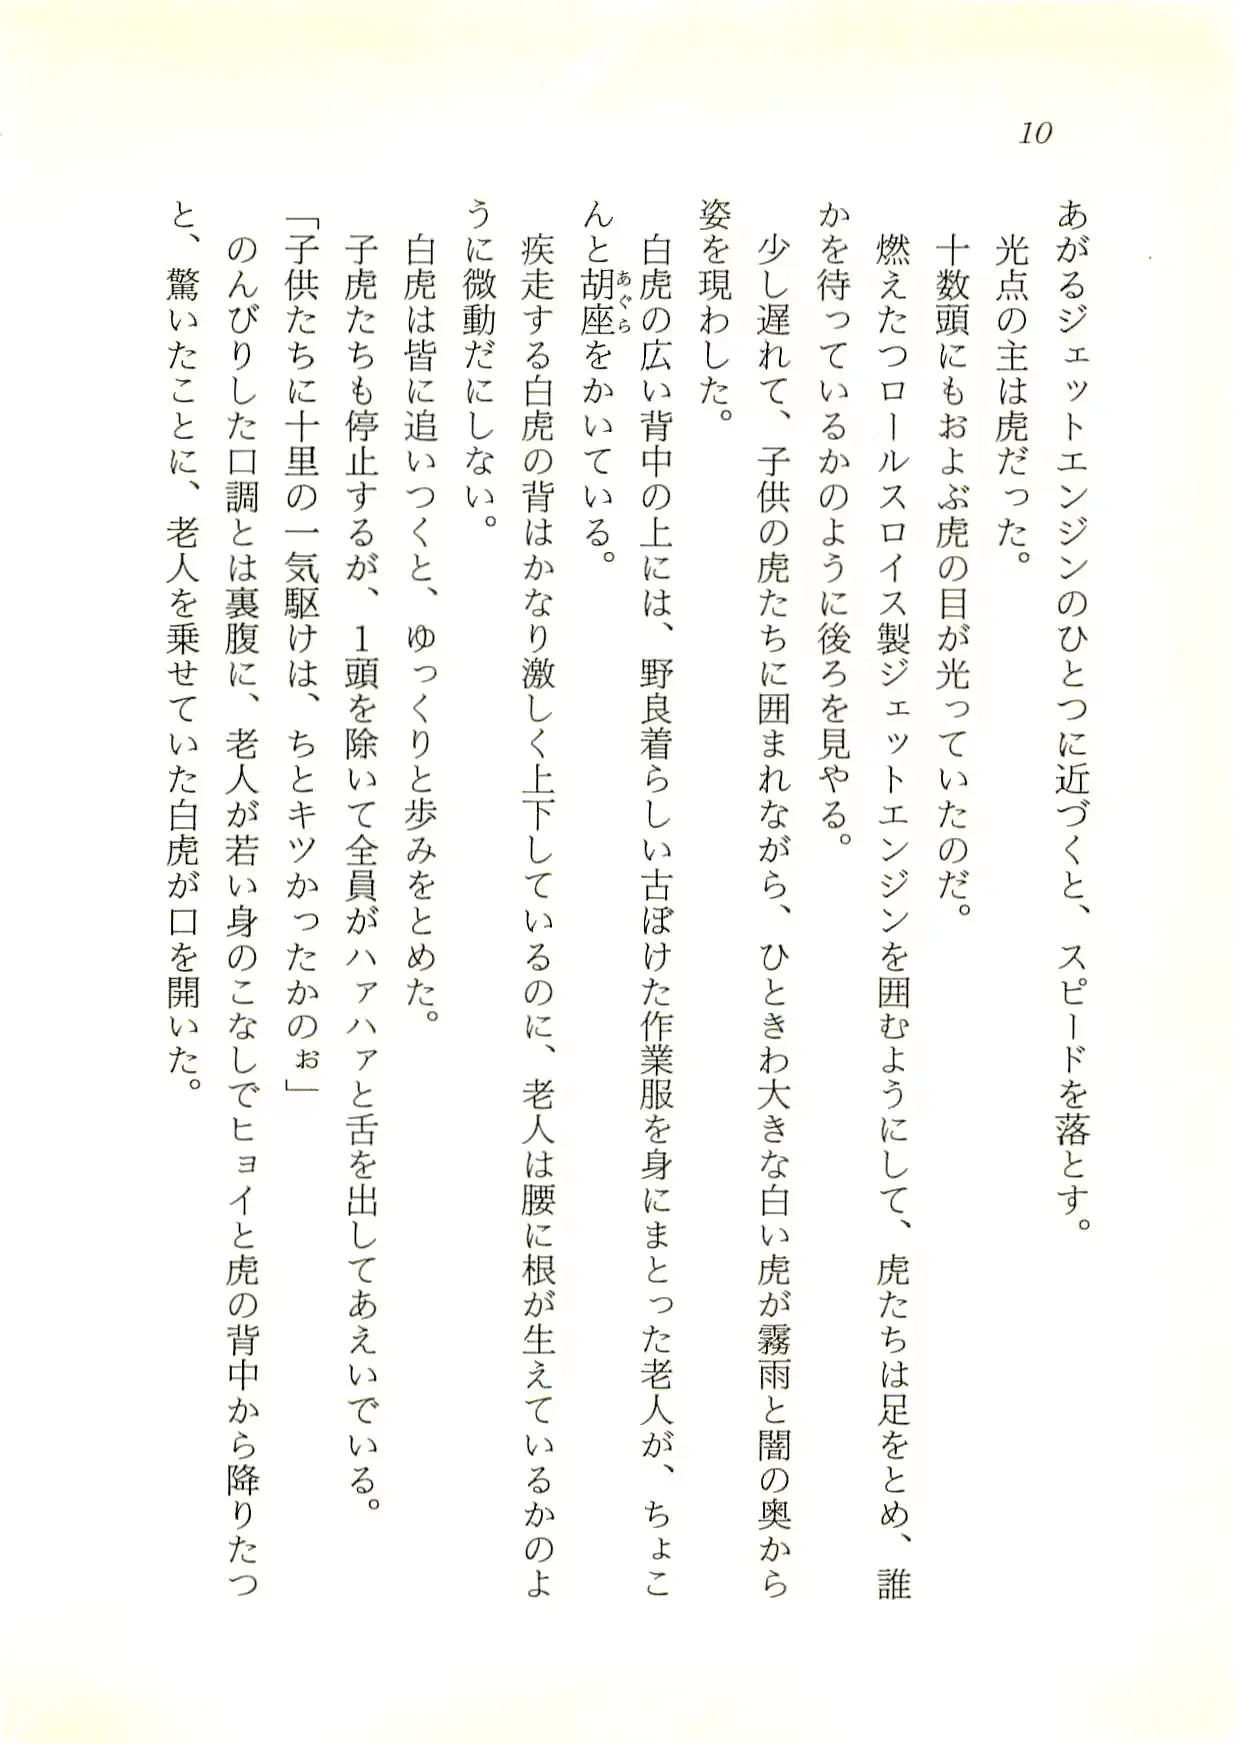 10
あがるジェットエンジンのひとつに近づくと、スピードを落とす。
光点の主は虎だった。
十数頭にもおよぶ虎の目が光っていたのだ。
燃えたつロールスロイス製ジェットエンジンを囲むようにして、虎たちは足をとめ、誰
かを待っているかのように後ろを見やる。
少し遅れて、子供の虎たちに囲まれながら、ひときわ大きな白い虎が霧雨と闇の奥から
姿を現わした。
白虎の広い背中の上には、野良着らしい古ぼけた作業服を身にまとった老人が、ちょこ
んと胡座をかいている。
あぐら
疾走する白虎の背はかなり激しく上下しているのに、老人は腰に根が生えているかのよ
うに微動だにしない。
白虎は皆に追いつくと、ゆっくりと歩みをとめた。
子虎たちも停止するが、1頭を除いて全員がハァハァと舌を出してあえいでいる。
「子供たちに十里の一気駆けは、ちとキツかったかのぉ」
のんびりした口調とは裏腹に、老人が若い身のこなしでヒョイと虎の背中から降りたつ
と、驚いたことに、老人を乗せていた白虎が口を開いた。